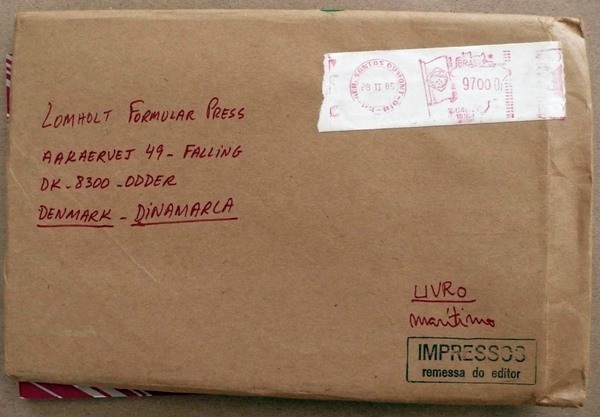 LOMHOLT FORMULAR PRESS
AAKAERVEJ 49 - FALLING
DK-8300-ODDER
DENMARK - DINAMARLA
SANTOS DUMONT
28 II 85
BRASIL
97000
LIVRO
marítimo
IMPRESSOS
remessa do editor